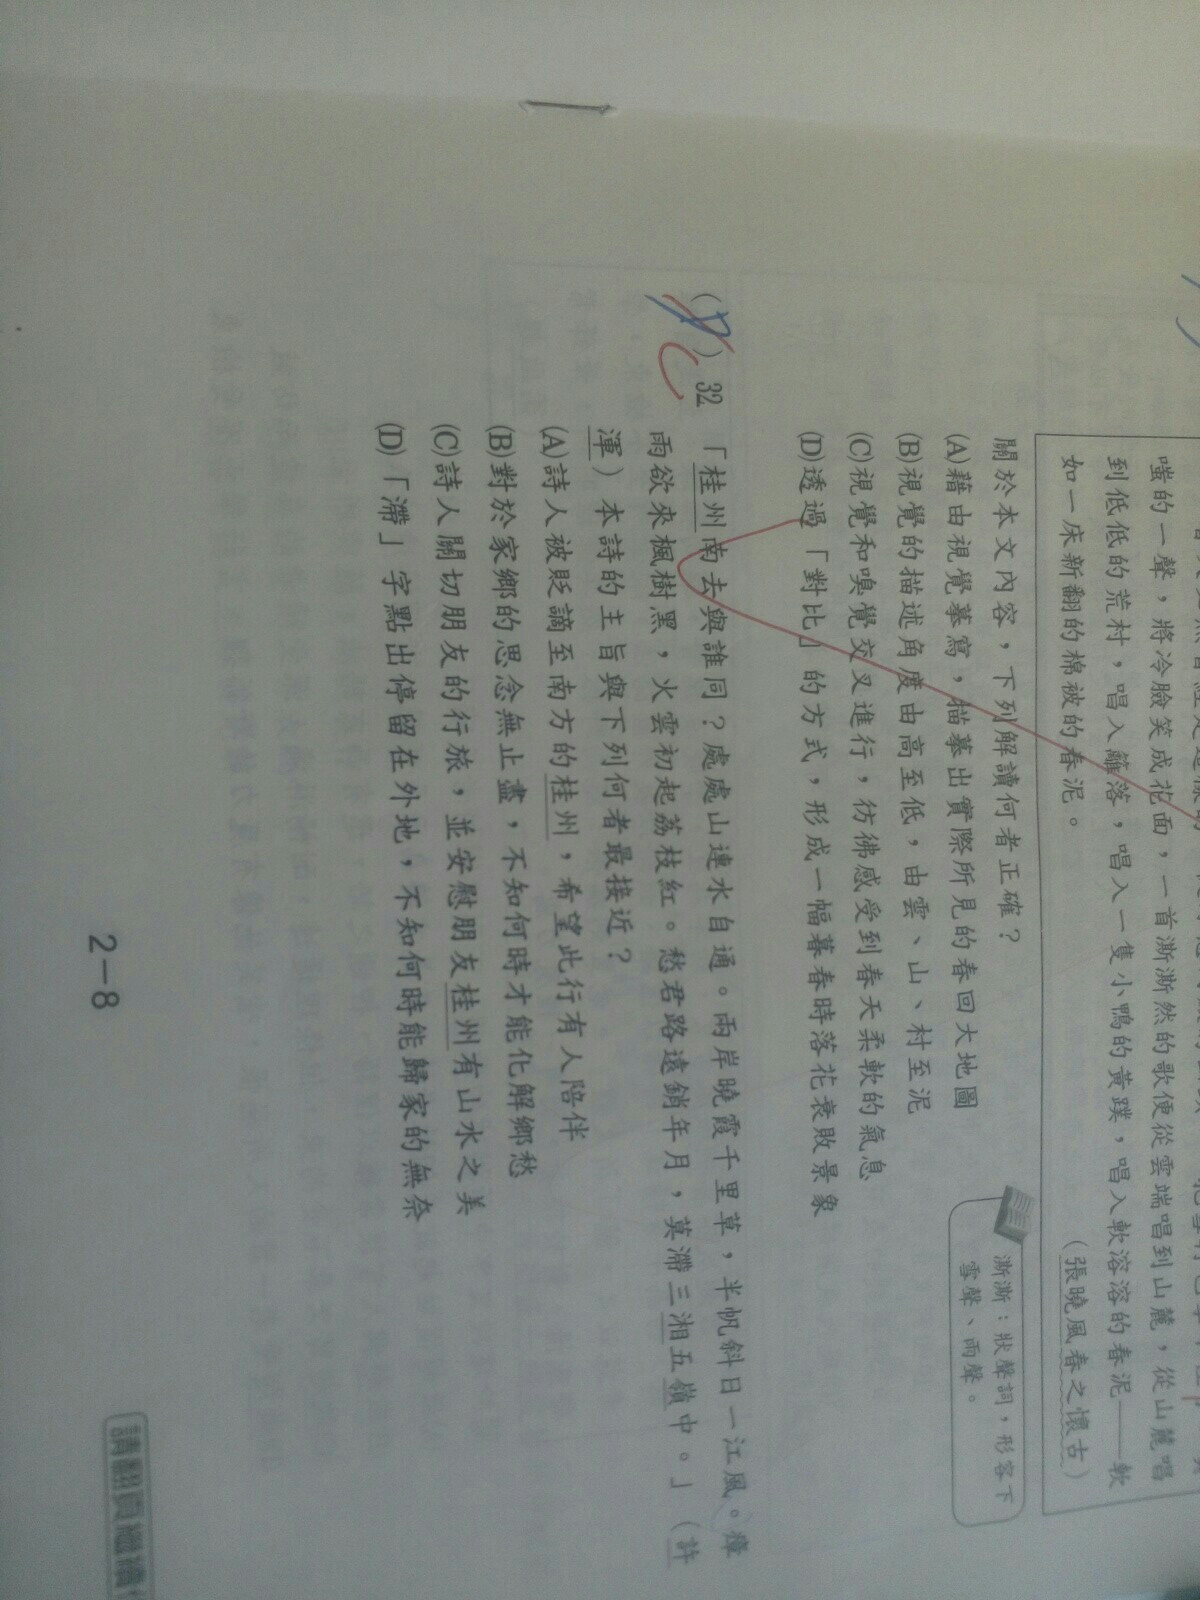 嗤的一聲，將冷臉笑成花面，一首澌澌然的歌便從雲端唱到山麓，從山麓唱
到低低的荒村，唱入籬落，唱入一隻小鴨的黃蹼，唱入軟溶溶的春泥——軟
如一床新翻的棉被的春泥。
（張曉風春之懷古）
澌澌：狀聲詞，形容下
雪聲、雨聲。
關於本文內容，下列解讀何者正確？
(A)藉由視覺摹寫，描摹出實際所見的春回大地圖
(B)視覺的描述角度由高至低，由雲、山、村至泥
(C)視覺和嗅覺交叉進行，彷彿感受到春天柔軟的氣息
(D)透過「對比」的方式，形成一幅暮春時落花衰敗景象
( ) 32 「桂州南去與誰同？處處山連水自通。兩岸曉霞千里草，半帆斜日一江風。瘴
雨欲來楓樹黑，火雲初起荔枝紅。愁君路遠銷年月，莫滯三湘五嶺中。」（許
渾）本詩的主旨與下列何者最接近？
(A)詩人被貶謫至南方的桂州，希望此行有人陪伴
(B)對於家鄉的思念無止盡，不知何時才能化解鄉愁
(C)詩人關切朋友的行旅，並安慰朋友桂州有山水之美
(D)「滯」字點出停留在外地，不知何時能歸家的無奈
C
2－8
請翻頁繼續